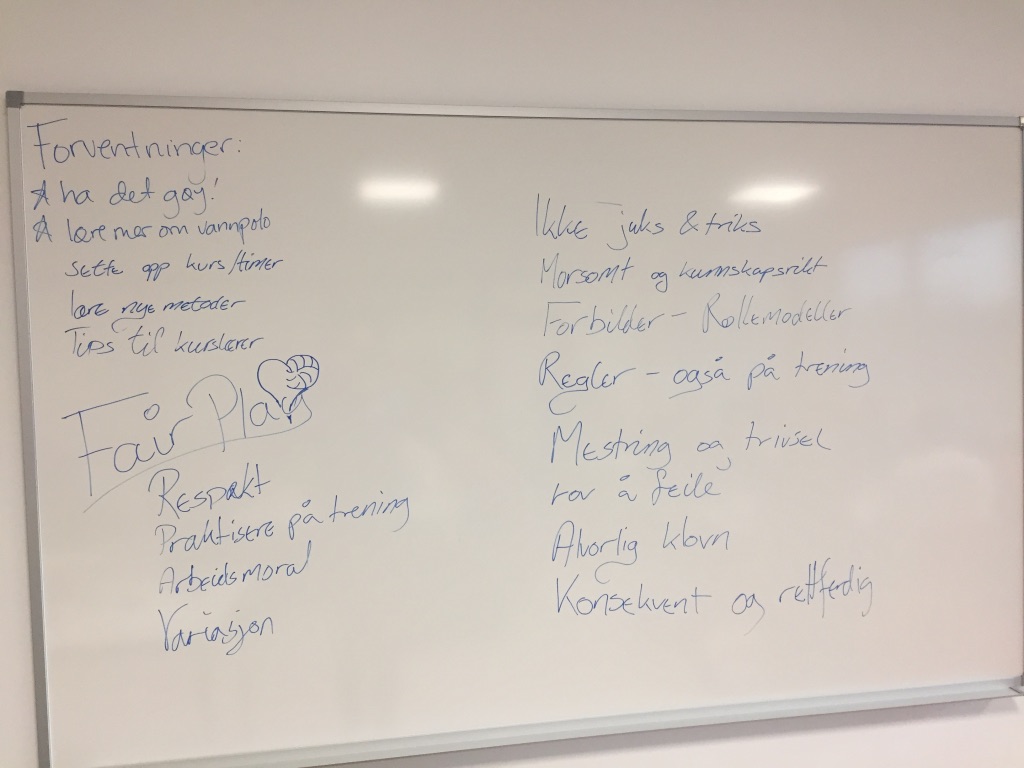 Forventninger:
ha det gøy!
lære mer om vannpolo
sette opp kurs/timer
lære nye metoder
Tips til kurslærer
Fair Play
Respekt
Praktisere på trening
Arbeidsmoral
Variasjon
Ikke juks & triks
Morsomt og kunnskapsrikt
Forbilder - Rollemodeller
Regler - også på trening
Mestring og trivsel
Lov å feile
Alvorlig klovn
Konsekvent og rettferdig